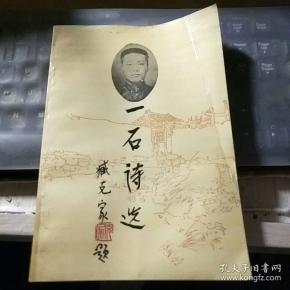 一石诗选
臧克家题
孔夫子旧书网